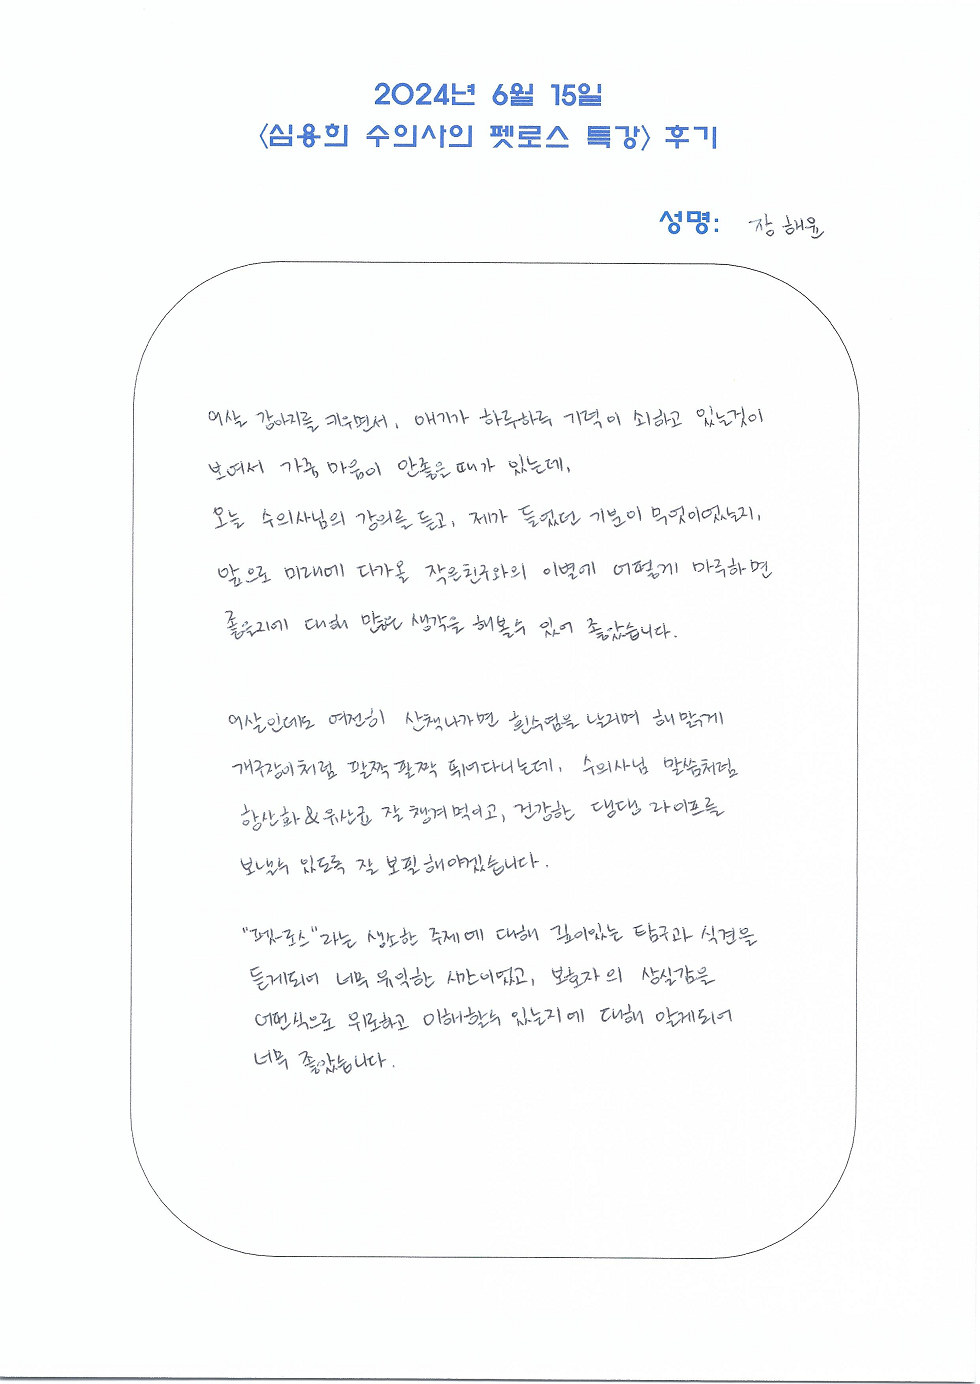 2024년 6월 15일
<심용희 수의사의 펫로스 특강> 후기
성명: 장해윤
여살 강아지를 키우면서, 애기가 하루하루 기력이 쇠하고 있는것이
보여서 가끔 마음이 안좋은 때가 있는데,
오늘 수의사님의 강의를 듣고, 제가 들었던 기분이 무엇이었는지,
앞으로 미래에 다가올 작은친구와의 이별에 어떻게 마주하면
좋을지에 대해 많은 생각을 해볼수 있어 좋았습니다.
여살인데도 여전히 산책나가면 흰수염을 날리며 해맑게
개구장이처럼 팔짝팔짝 뛰어다니는데, 수의사님 말씀처럼
항산화&유산균 잘 챙겨먹이고, 건강한 댕댕 라이프를
보낼수 있도록 잘 보필해야겠습니다.
"펫로스"라는 생소한 주제에 대해 깊이있는 탐구와 식견을
듣게되어 너무 유익한 시간이었고, 보호자의 상실감을
어떤식으로 위로하고 이해할수 있는지에 대해 알게되어
너무 좋았습니다.